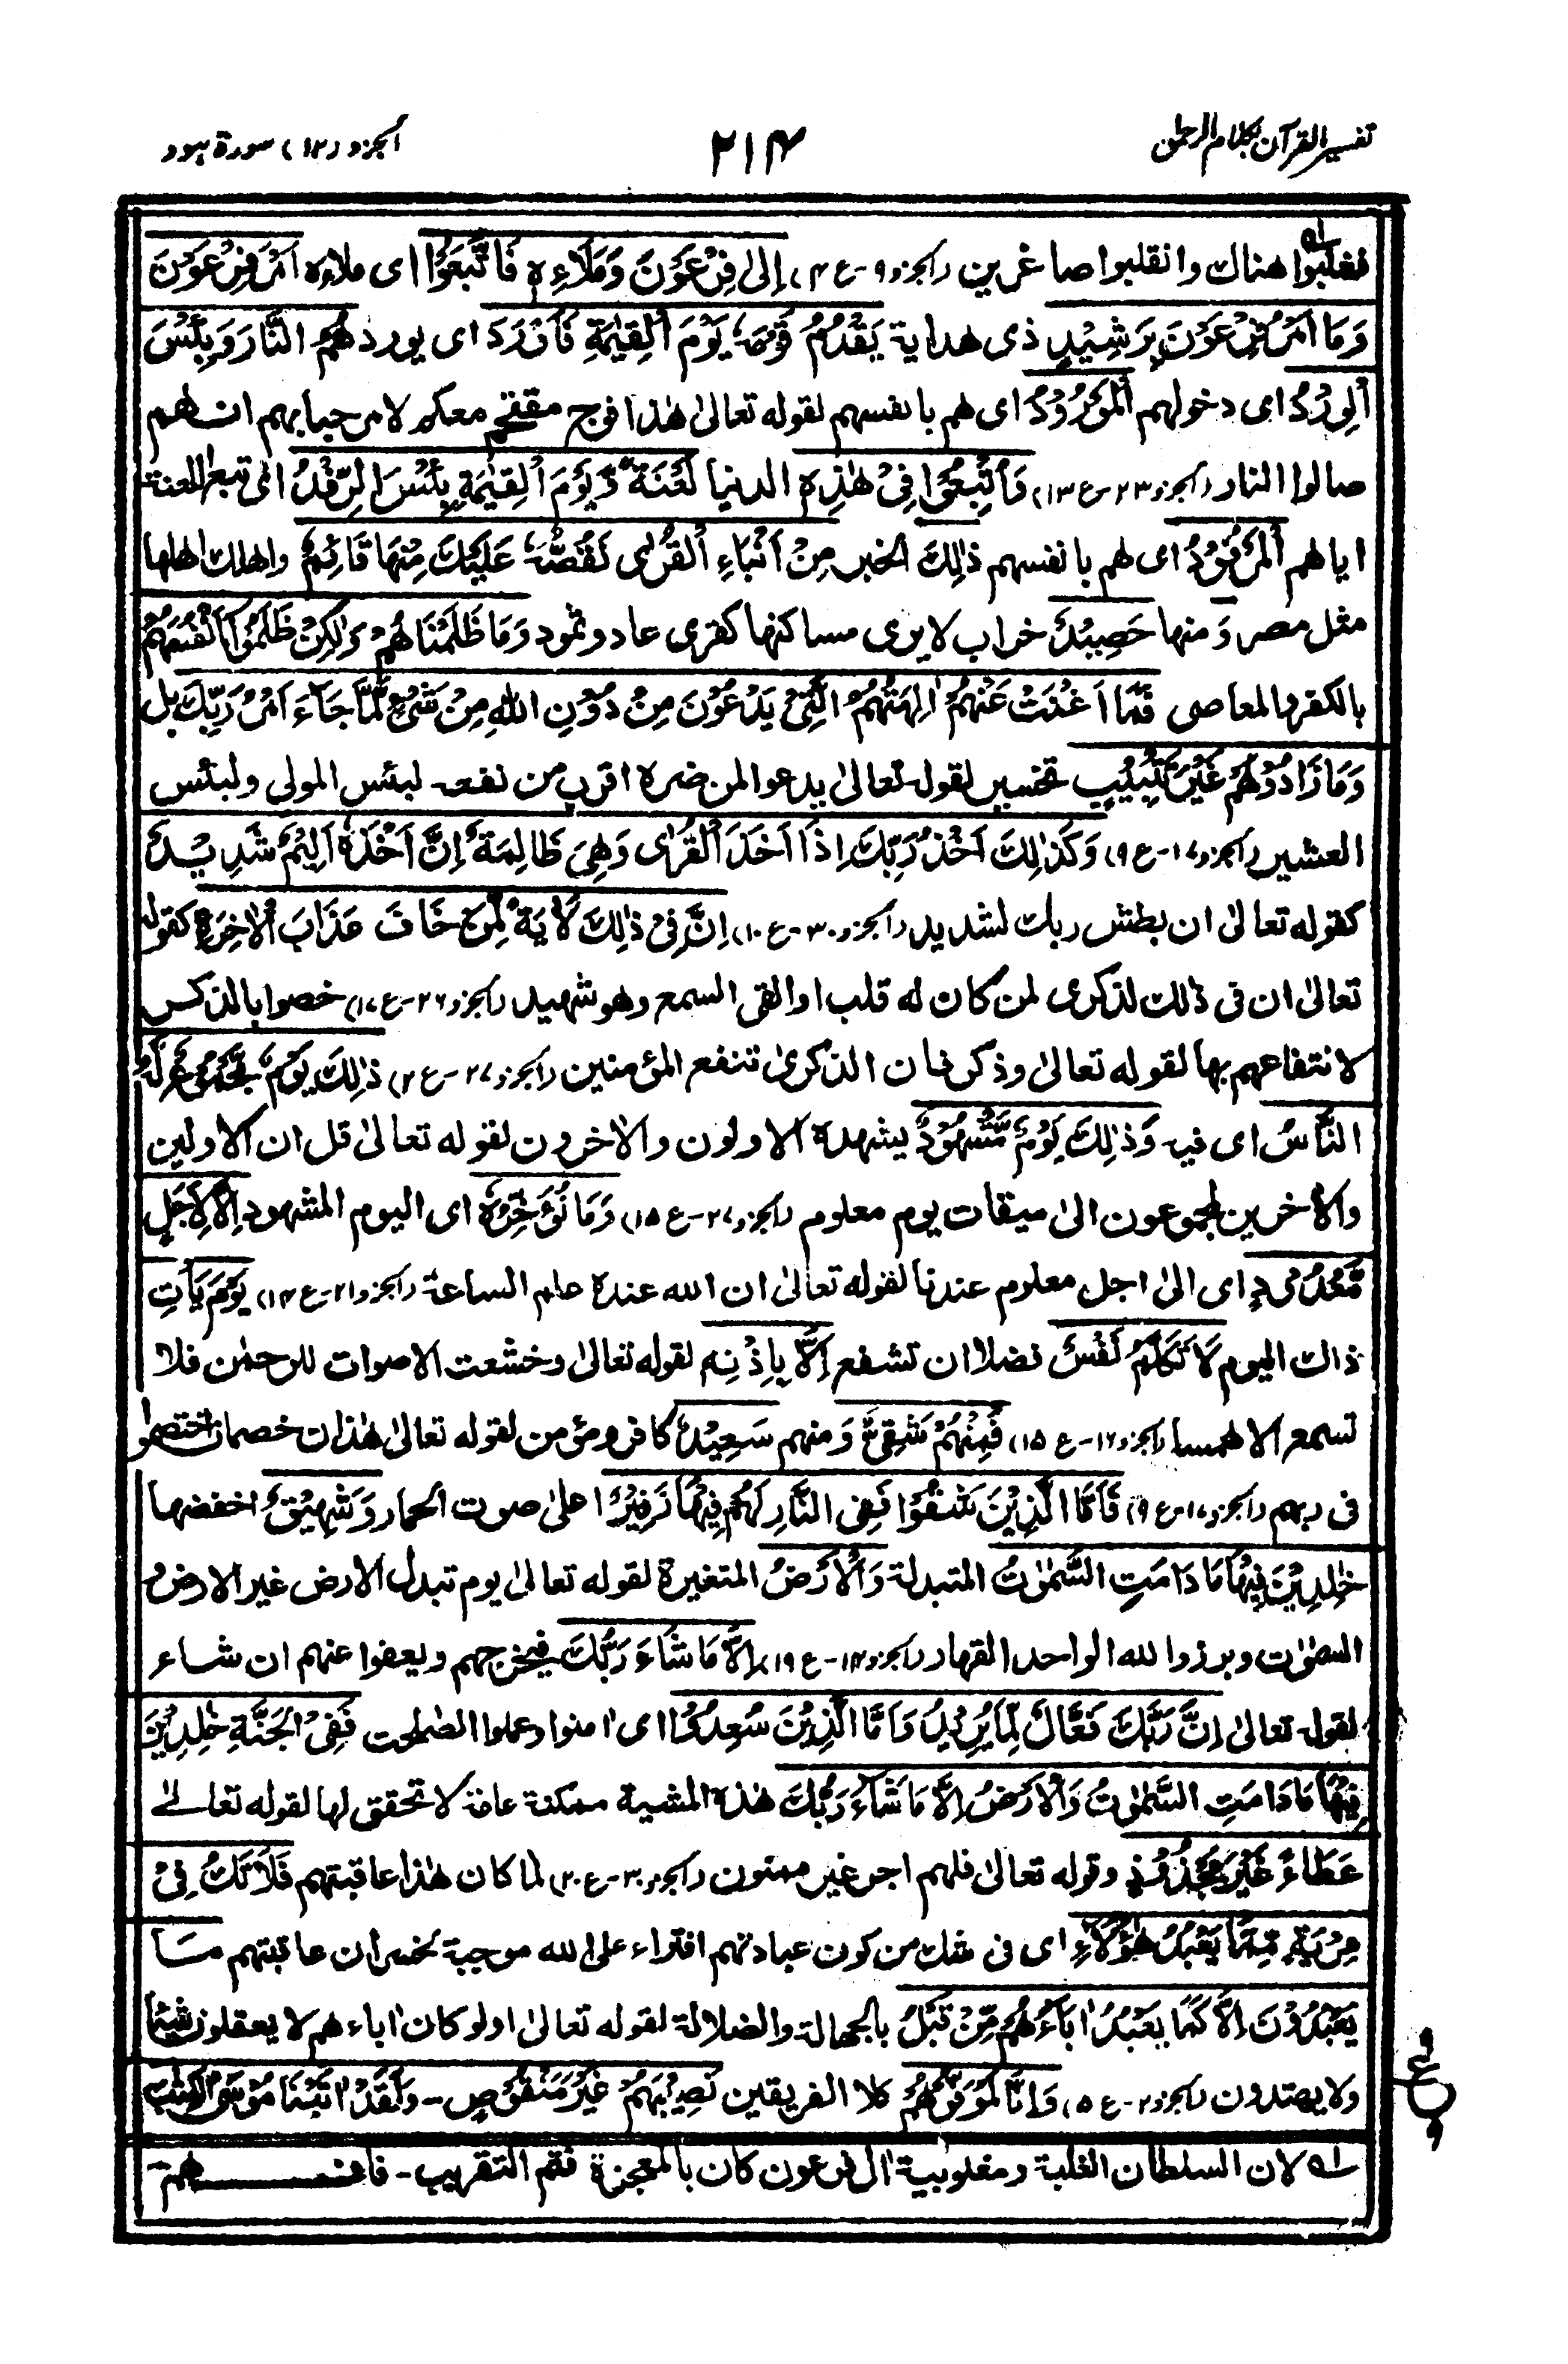 تفسير القرآن بكلام الرحمن
٢١٤
الجزو (١٢) سورة هود
فغلبوا هنالك وانقلبوا صاغرين (الجزو ٩-ع ٤) اِلٰى فِرْعَوْنَ وَمَلَا۟ئِهٖ فَاتَّبَعُوْۤا اى ملاءه اَمْرَ فِرْعَوْنَ
وَمَاۤ اَمْرُ فِرْعَوْنَ بِرَشِيْدٍ ذى هداية يَقْدُمُ قَوْمَهٗ يَوْمَ الْقِيٰمَةِ فَاَوْرَدَ اى يورد هُمُ النَّارَ وَبِئْسَ
الْوِرْدُ اى دخولهم الْمَوْرُوْدُ اى هم بانفسهم لقوله تعالىٰ هٰذا فوج مقتحم معكم لا مرحبا بهم انهم
صالوا النار (الجزو ٢٣-ع ١٣) وَاُتْبِعُوْا فِىْ هٰذِهٖ الدنيا لَعْنَةً وَّيَوْمَ الْقِيٰمَةِ بِئْسَ الرِّفْدُ اى تبع اللعنة
اياهم الْمَرْفُوْدُ اى هم بانفسهم ذٰلِكَ الخبر مِنْ اَنْۢبَآءِ الْقُرٰى نَقُصُّهٗ عَلَيْكَ مِنْهَا قَآئِمٌ واهلك اهلها
مثل مصر وَ منها حَصِيْدٌ خراب لا يرى مساكنها كقرى عاد وثمود وَمَا ظَلَمْنَاهُمْ وَلٰكِنْ ظَلَمُوْۤا اَنْفُسَهُمْ
بالكفر والمعاصى فَمَاۤ اَغْنَتْ عَنْهُمْ اٰلِهَتُهُمُ الَّتِىْ يَدْعُوْنَ مِنْ دُوْنِ اللهِ مِنْ شَىْءٍ لَّمَّا جَآءَ اَمْرُ رَبِّكَ بل
وَمَا زَادُوْهُمْ غَيْرَ تَتْبِيْبٍ تخسير لقوله تعالىٰ يدعوا لمن ضره اقرب من نفعه۔ لبئس المولى ولبئس
العشير (الجزو ١٧-ع ٩) وَكَذٰلِكَ اَخْذُ رَبِّكَ اِذَاۤ اَخَذَ الْقُرٰى وَهِىَ ظَالِمَةٌ اِنَّ اَخْذَهٗۤ اَلِيْمٌ شَدِيْدٌ
كقوله تعالىٰ ان بطش ربك لشديد (الجزو ٣٠-ع ١٠) اِنَّ فِىْ ذٰلِكَ لَاٰيَةً لِّمَنْ خَافَ عَذَابَ الْاٰخِرَةِ كقوله
تعالىٰ ان فى ذٰلك لذكرى لمن كان له قلب او القى السمع وهو شهيد (الجزو ٢٦-ع ١٧) خصوا بالذكر
لانتفاعهم بها لقوله تعالىٰ وذكر فان الذكرىٰ تنفع المؤمنين (الجزو ٢٧-ع ٢) ذٰلِكَ يَوْمٌ مَّجْمُوْعٌ لَّهُ
النَّاسُ اى فيه وَذٰلِكَ يَوْمٌ مَّشْهُوْدٌ يشهده الاولون والاٰخرون لقوله تعالىٰ قل ان الاولين
والاٰخرين لمجموعون الىٰ ميقات يوم معلوم (الجزو ٢٧-ع ١٥) وَمَا نُؤَخِّرُهٗۤ اى اليوم المشهود اِلَّا لِاَجَلٍ
مَّعْدُوْدٍ اى الىٰ اجل معلوم عندنا لقوله تعالىٰ ان الله عنده علم الساعة (الجزو ٢١-ع ١٣) يَوْمَ يَاْتِ
ذاك اليوم لَا تَكَلَّمُ نَفْسٌ فضلا ان تشفع اِلَّا بِاِذْنِهٖ لقوله تعالىٰ وخشعت الاصوات للرحمٰن فلا
تسمع الا همسا (الجزو ١٦-ع ١٥) فَمِنْهُمْ شَقِىٌّ وَ منهم سَعِيْدٌ كافر ومؤمن لقوله تعالىٰ هٰذان خصمان اختصموا
فى ربهم (الجزو ١٧-ع ٩) فَاَمَّا الَّذِيْنَ شَقُوْا فَفِى النَّارِ لَهُمْ فِيْهَا زَفِيْرٌ اعلىٰ صوت الحمار وَشَهِيْقٌ اخفضها
خٰلِدِيْنَ فِيْهَا مَا دَامَتِ السَّمٰوٰتُ المتبدلة وَالْاَرْضُ المتغيرة لقوله تعالىٰ يوم تبدل الارض غير الارض و
السمٰوٰت وبرزوا لله الواحد القهار (الجزو ١٣-ع ١٩) اِلَّا مَا شَآءَ رَبُّكَ فيخرجهم ويعفوا عنهم ان شاء
لقوله تعالىٰ اِنَّ رَبَّكَ فَعَّالٌ لِّمَا يُرِيْدُ وَاَمَّا الَّذِيْنَ سُعِدُوْا اى اٰمنوا وعملوا الصٰلحٰت فَفِى الْجَنَّةِ خٰلِدِيْنَ
فِيْهَا مَا دَامَتِ السَّمٰوٰتُ وَالْاَرْضُ اِلَّا مَا شَآءَ رَبُّكَ هٰذه المشية ممكنة عامة لا تحقق لها لقوله تعالىٰ
عَطَآءً غَيْرَ مَجْذُوْذٍ وقوله تعالىٰ فلهم اجر غير ممنون (الجزو ٣٠-ع ٢٠) لما كان هٰذا عاقبتهم فَلَا تَكُ فِىْ
مِرْيَةٍ مِّمَّا يَعْبُدُ هٰۤؤُلَآءِ اى فى شك من كون عبادتهم افتراء على الله موجبة لخسران عاقبتهم مَا
يَعْبُدُوْنَ اِلَّا كَمَا يَعْبُدُ اٰبَآءُهُمْ مِّنْ قَبْلُ بالجهالة والضلالة لقوله تعالىٰ اولو كان اٰباءهم لا يعقلون شيئا
ولا يهتدون (الجزو ٢-ع ٥) وَاِنَّا لَمُوَفُّوْهُمْ كلا الفريقين نَصِيْبَهُمْ غَيْرَ مَنْقُوْصٍ۔ وَلَقَدْ اٰتَيْنَا مُوْسَى الْكِتٰبَ
ا؎ لان السلطان الغلبة ومغلوبية اٰل فرعون كان بالمعجزة فتم التقريب۔ فافهم منه